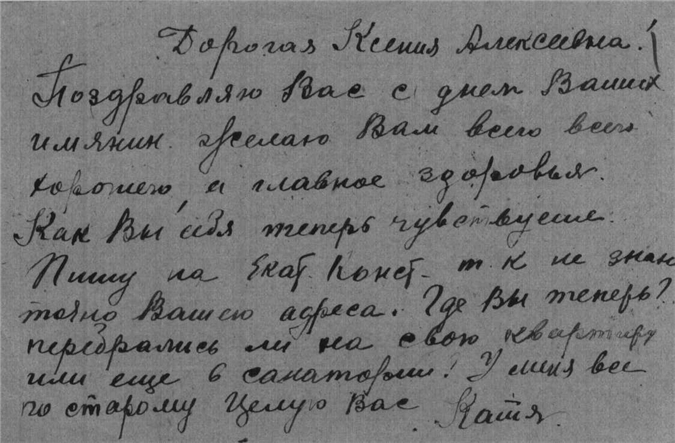 Дорогая Ксения Алексеевна!
Поздравляю Вас с днем Ваших
имянин. Желаю Вам всего всего
хорошего, а главное здоровья.
Как Вы себя теперь чувствуете.
Пишу на Екат. Конст. т. к не знаю
точно Вашего адреса. Где Вы теперь?
перебрались ли на свою квартиру
или еще в санатории? У меня все
по старому Целую Вас Катя.